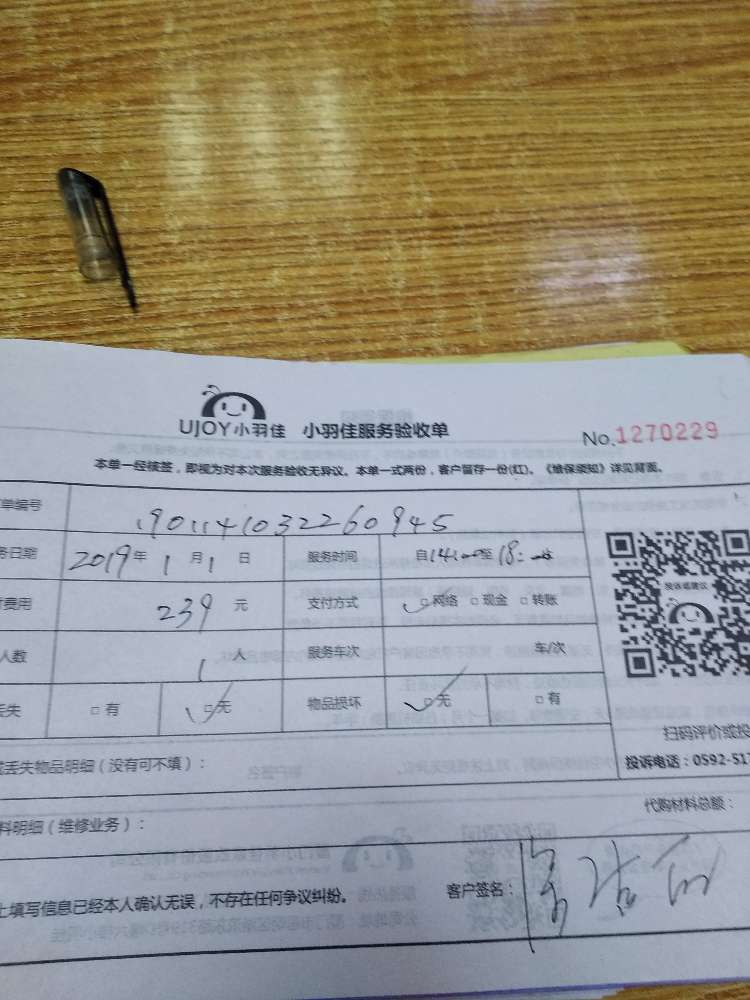 UJOY小羽佳 小羽佳服务验收单 No.1270229
本单一经核签，即视为对本次服务验收无异议。本单一式两份，客户留存一份(红)。《维保须知》详见背面。
单编号 190114103226094​5
务日期 2019年1月1日 服务时间 自14:00至18:00
费用 239元 支付方式 □网络 □现金 □转账
人数 1人 服务车次 车/次
丢失 □有 □无 物品损坏 □无 □有
投诉或建议
扫码评价或投
丢失物品明细（没有可不填）： 投诉电话：0592-517
料明细（维修业务）： 代购材料总额：
上填写信息已经本人确认无误，不存在任何争议纠纷。 客户签名：